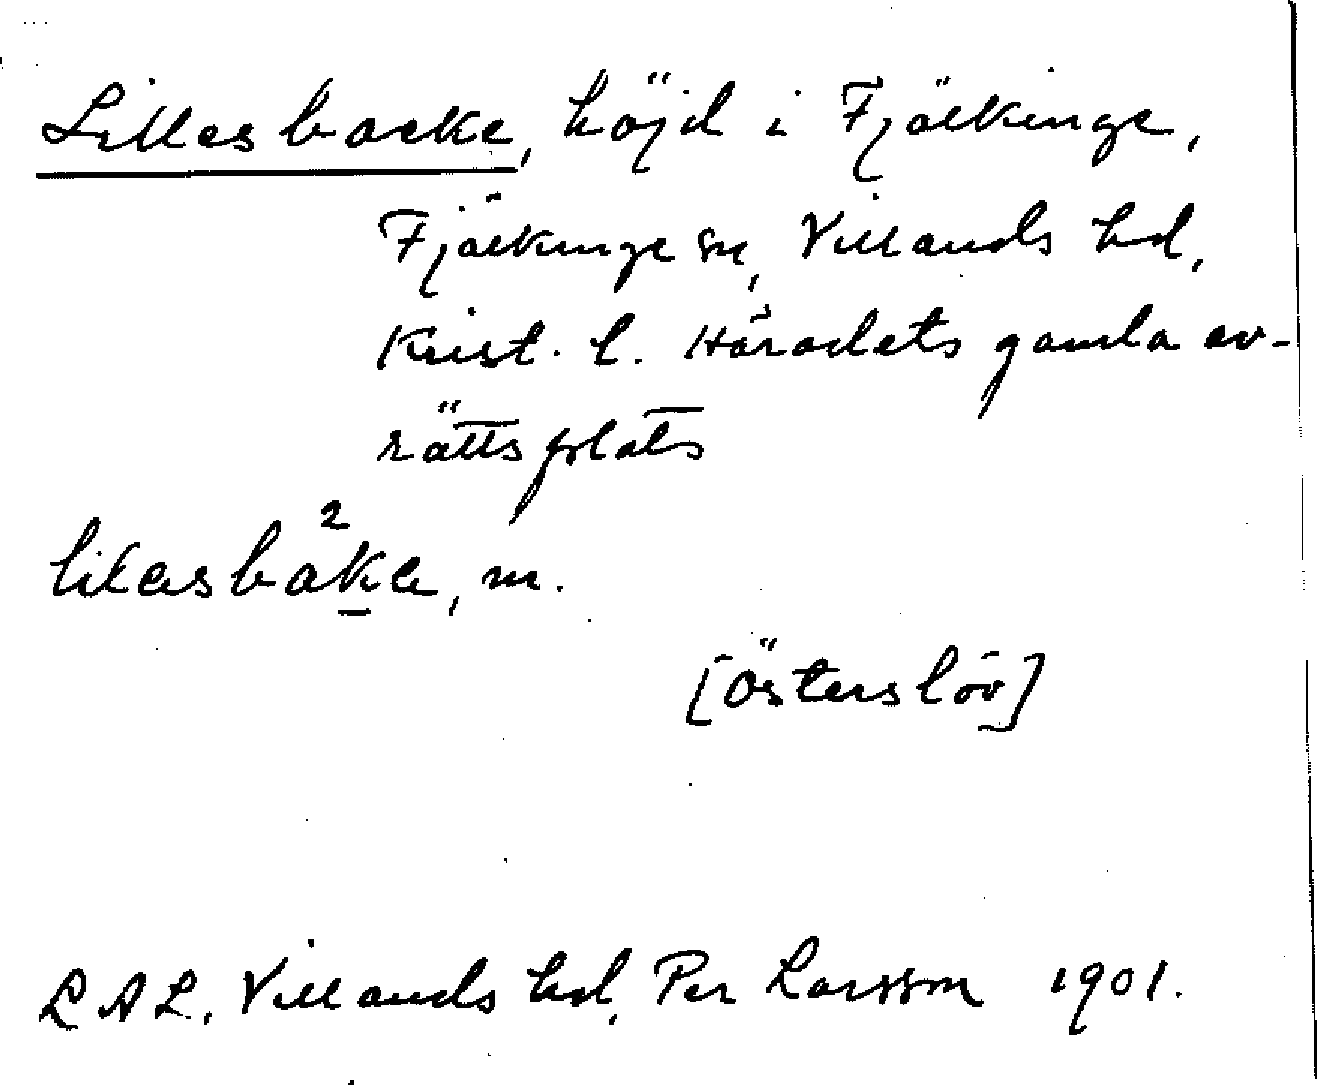 Lillesbacke, höjd i Fjälkinge,
Fjälkinge sn, Villands hd,
Krist. l. Häradets gamla av-
rättsplats
lilasbaka, m.
[Österslöv]
LAL, Villands hd, Per Larsson 1901.